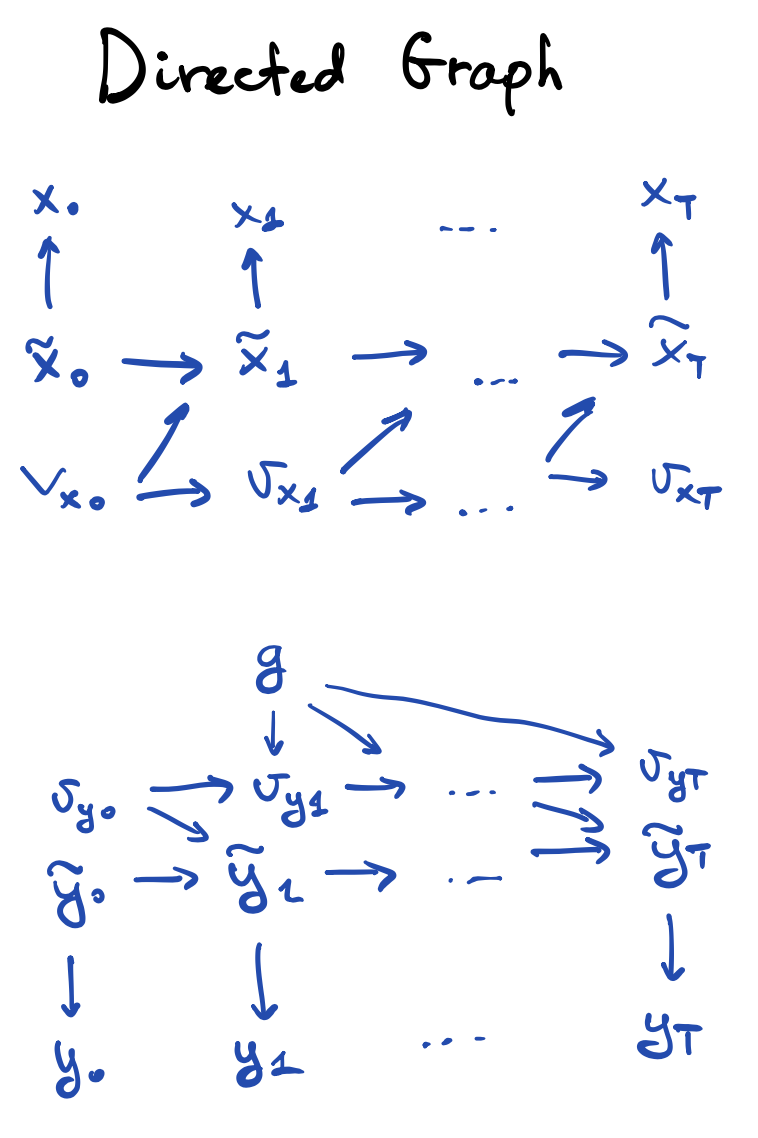 Directed Graph
x₀ x₁ --- x_T
x̃₀ x̃₁ ... x̃_T
v_x₀ v_x₁ ... v_x_T
g
v_y₀ v_y₁ ... v_y_T
ỹ₀ ỹ₁ ... ỹ_T
y₀ y₁ ... y_T